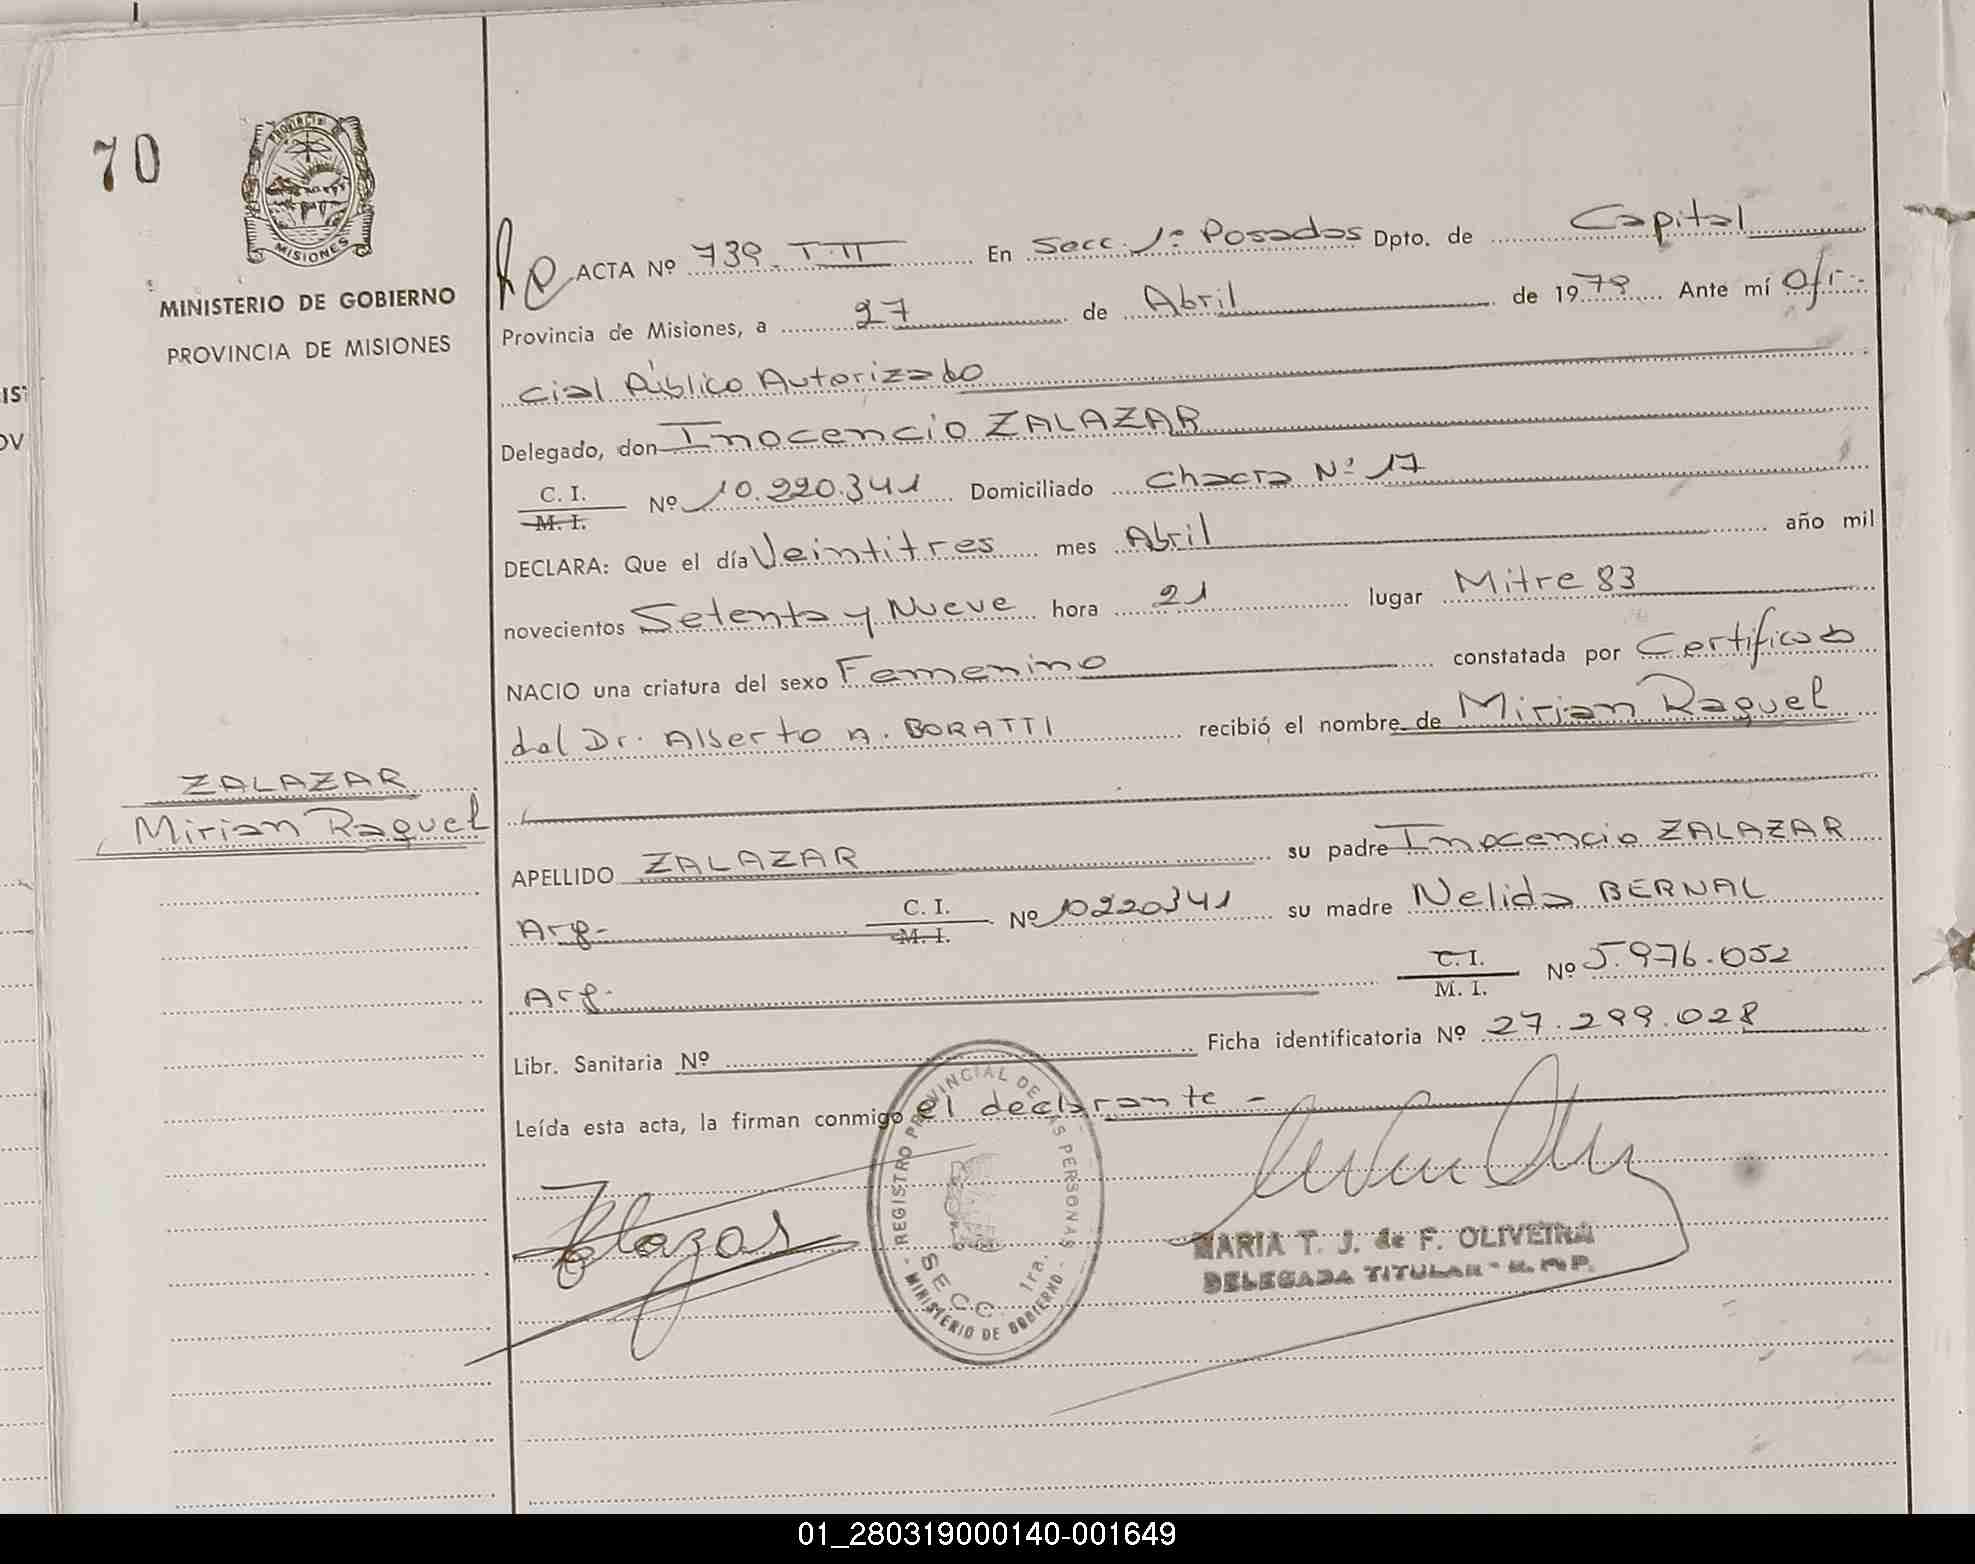 70
PROVINCIA DE
MISIONES
MINISTERIO DE GOBIERNO
PROVINCIA DE MISIONES
ZALAZAR
Mirian Raquel
ACTA Nº 739 T.II En Secc. 1º Posadas Dpto. de Capital
Provincia de Misiones, a 27 de Abril de 1979 Ante mí Ofi-
cial Público Autorizado
Delegado, don Inocencio ZALAZAR
C. I.
M. I. Nº 10.220.341 Domiciliado Chacra Nº 17
DECLARA: Que el día Veintitres mes Abril año mil
novecientos Setenta y Nueve hora 21 lugar Mitre 83
NACIO una criatura del sexo Femenino constatada por Certificado
del Dr. Alberto A. BORATTI recibió el nombre de Mirian Raquel
APELLIDO ZALAZAR su padre Inocencio ZALAZAR
Arg- C. I.
M. I. Nº 10220341 su madre Nelida BERNAL
Arg- C. I.
M. I. Nº 5.976.052
Libr. Sanitaria Nº Ficha identificatoria Nº 27.299.028
Leída esta acta, la firman conmigo el declarante -
Zalazar
REGISTRO PROVINCIAL DE LAS PERSONAS
SECC. 1ra.
MINISTERIO DE GOBIERNO
MARIA T. J. de F. OLIVEIRA
DELEGADA TITULAR
IS
OV
01_280319000140-001649